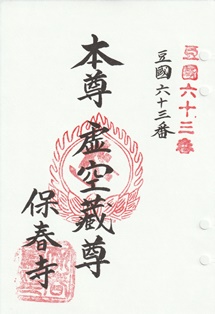 豆國六十三番
豆國六十三番
本尊虚空蔵尊
保春寺